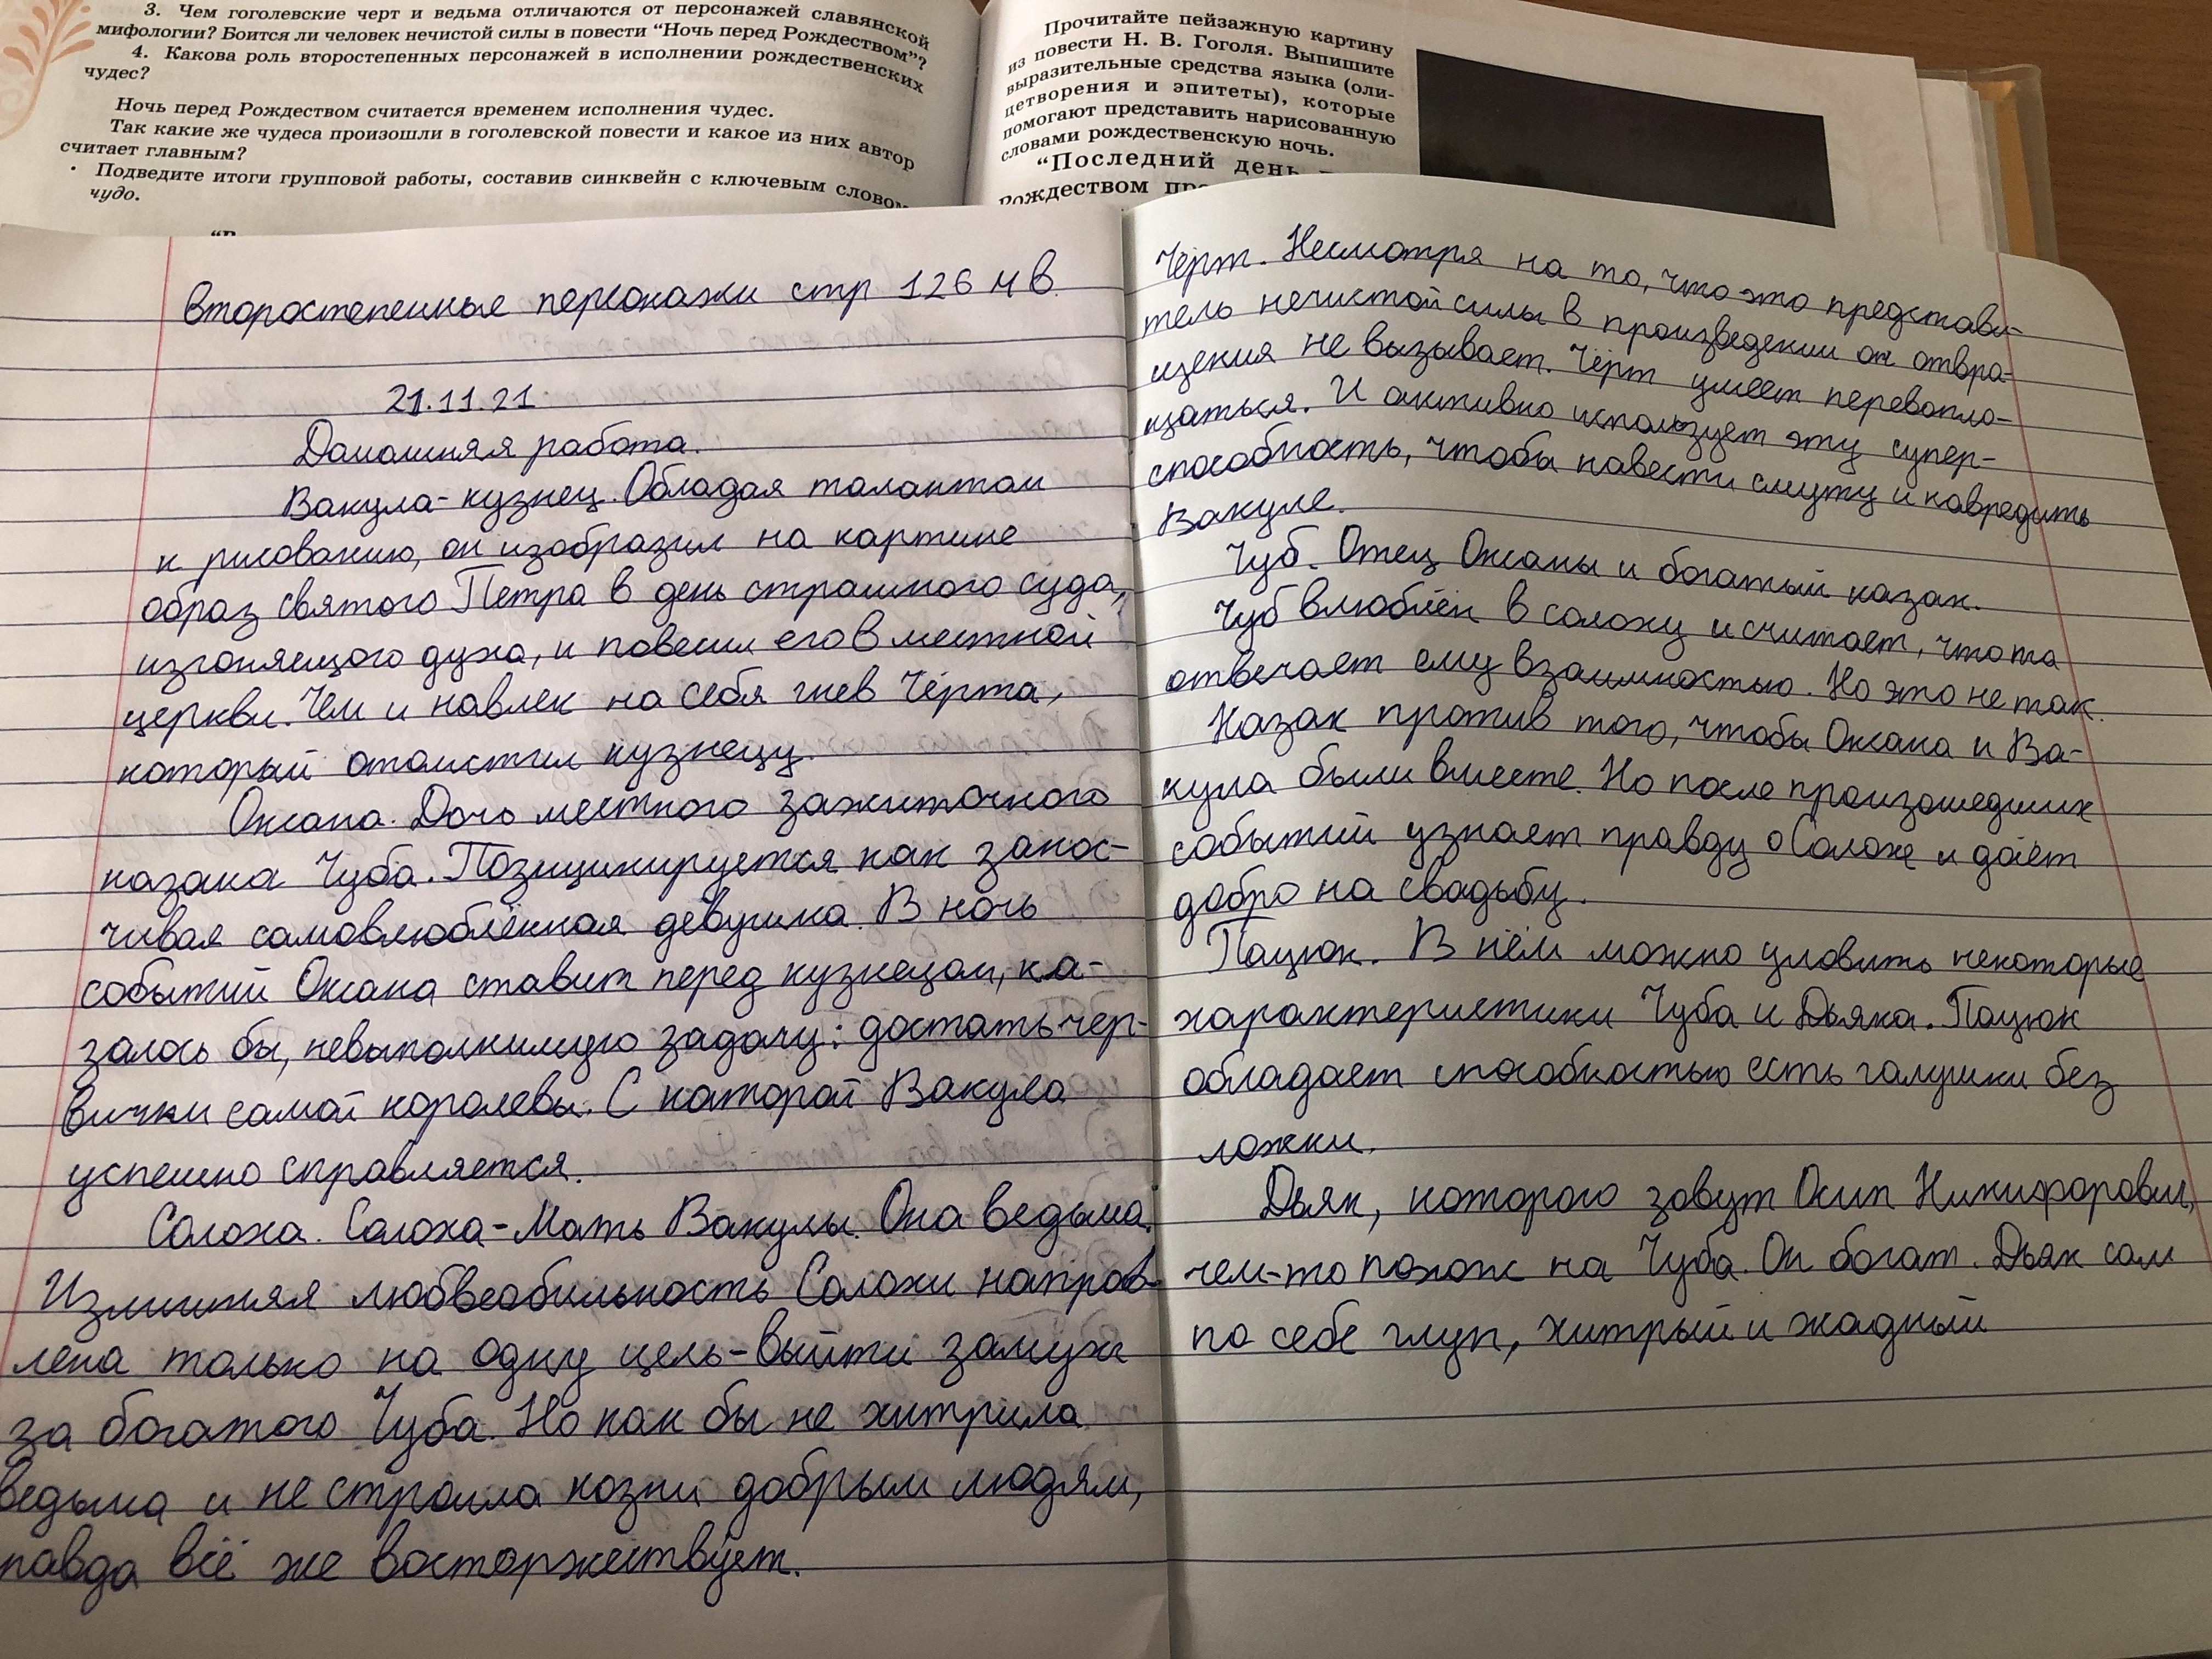 3. Чем гоголевские черт и ведьма отличаются от персонажей славянской
мифологии? Боится ли человек нечистой силы в повести “Ночь перед Рождеством”?
4. Какова роль второстепенных персонажей в исполнении рождественских
чудес?
Ночь перед Рождеством считается временем исполнения чудес.
Так какие же чудеса произошли в гоголевской повести и какое из них автор
считает главным?
• Подведите итоги групповой работы, составив синквейн с ключевым словом
чудо.
Прочитайте пейзажную картину
из повести Н. В. Гоголя. Выпишите
выразительные средства языка (оли-
цетворения и эпитеты), которые
помогают представить нарисованную
словами рождественскую ночь.
“Последний день
Рождеством
второстепенные персонажи стр 126 ч в.
21.11.21.
Домашняя работа.
Вакула-кузнец. Обладая талантом
к рисованию, он изобразил на картине
образ святого Петра в день страшного суда,
изгоняещого духа, и повесил его в местной
церкви. Чем и навлек на себя гнев Чёрта,
который отомстил кузнецу.
Оксана. Дочь местного зажиточного
казака Чуба. Позицинируется как занос-
чивая самовлюблённая девушка. В ночь
событий Оксана ставит перед кузнецом, ка-
залось бы, невыполнимую задачу: достать чер-
вички самой королевы. С которой Вакула
успешно справляется.
Солоха. Солоха-Мать Вакулы. Она ведьма.
Излишняя любвеобильность Солохи направ-
лена только на одну цель-выйти замуж
за богатого Чуба. Но как бы не хитрила
ведьма и не строила козни добрым людям,
равда всё же восторжествует.
Чёрт. Несмотря на то, что это представи-
тель нечистой силы в произведении он отвра-
щения не вызывает. Чёрт умеет перевопло-
щаться. И активно использует эту супер-
способность, чтобы навести смуту и навредить
Вакуле.
Чуб. Отец Оксаны и богатый казак.
Чуб влюблён в солоху и считает, что та
отвечает ему взаимностью. Но это не так.
Казак против того, чтобы Оксана и Ва-
кула были вместе. Но после произошедших
событий узнает правду о Солохе и даёт
добро на свадьбу.
Пацюк. В нём можно уловить некоторые
характеристики Чуба и Дьяка. Пацюк
обладает способностью есть галушки без
ложки.
Дьяк, которого зовут Осип Никифорович,
чем-то похож на Чуба. Он богат. Дьяк сам
по себе глуп, хитрый и жадный